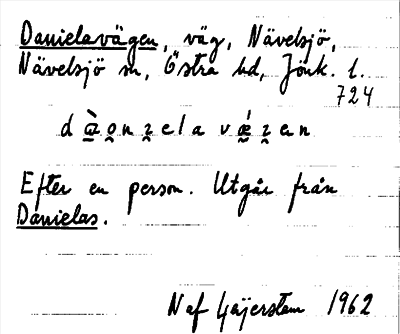 Danielavägen, väg, Nävelsjö,
Nävelsjö sn, Östra hd, Jönk. l.
724
Efter en person. Utgår från
Danielas.
Naf Gaijerstam 1962